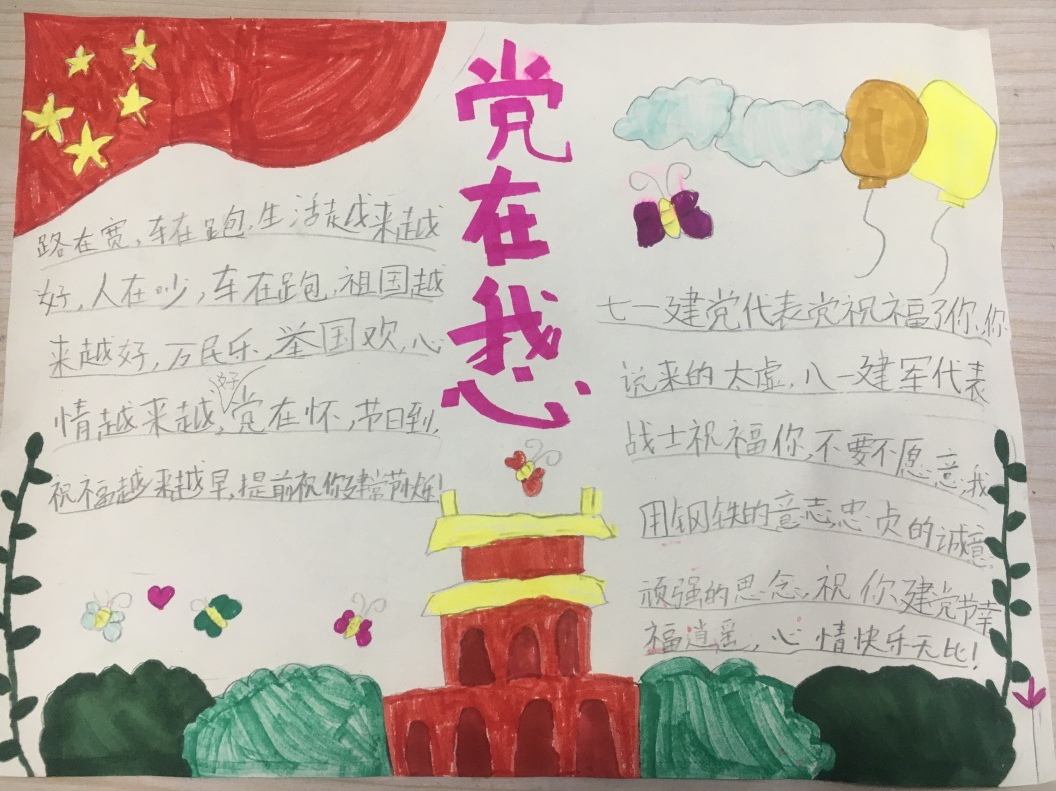 党在我心
路在宽，车在跑，生活越来越
好，人在吵，车在跑，祖国越
来越好，万民乐，举国欢，心
情越来越好，党在怀，节日到，
祝福越来越早，提前祝你建党节快乐！
七一建党代表党祝福了你，你
说来的太虚，八一建军代表
战士祝福你，不要不愿意，我
用钢铁的意志，忠贞的诚意，
顽强的思念，祝你建党节幸
福逍遥，心情快乐无比！